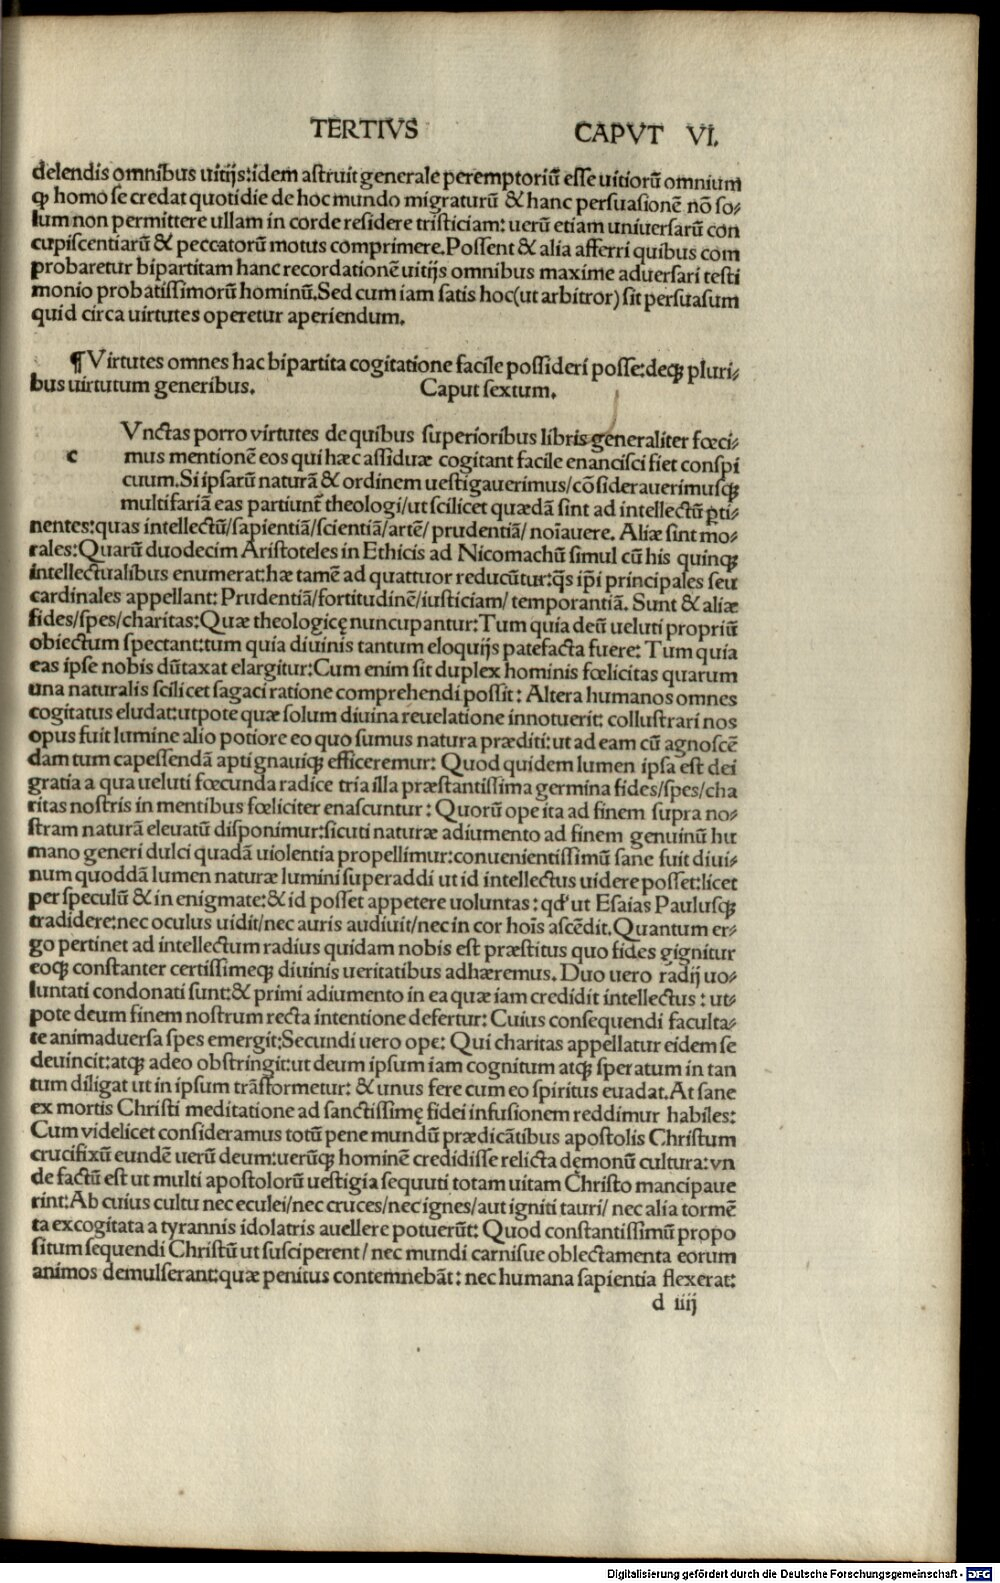 TERTIVS CAPVT VI.
delendis omnibus uitijs:idem astruit generale peremptoriū esse uitiorū omnium
ꝙ homo se credat quotidie de hoc mundo migraturū & hanc persuasionē nō so-
lum non permittere ullam in corde residere tristiciam: uerū etiam uniuersarū con
cupiscentiarū & peccatorū motus comprimere.Possent & alia afferri quibus com
probaretur bipartitam hanc recordationē uitijs omnibus maxime aduersari testi
monio probatissimorū hominū.Sed cum iam satis hoc(ut arbitror) sit persuasum
quid circa uirtutes operetur aperiendum.
¶Virtutes omnes hac bipartita cogitatione facile possideri posse:deqꝫ pluri-
bus uirtutum generibus. Caput sextum.
Vnctas porro virtutes de quibus superioribus libris generaliter fœci-
c mus mentionē eos qui hæc assiduæ cogitant facile enancisci fiet conspi
cuum.Si ipsarū naturā & ordinem uestigauerimus/cōsiderauerimusqꝫ
multifariā eas partiunt̄ theologi/ut scilicet quædā sint ad intellectū ꝑti-
nentes:quas intellectū/sapientiā/scientiā/artē/ prudentiā/ noīauere. Aliæ sint mo-
rales:Quarū duodecim Aristoteles in Ethicis ad Nicomachū simul cū his quinqꝫ
intellectualibus enumerat:hæ tamē ad quattuor reducūtur:q̄s ip̄i principales seu
cardinales appellant: Prudentiā/fortitudinē/iusticiam/ temporantiā. Sunt & aliæ
fides/spes/charitas:Quæ theologicę nuncupantur:Tum quia deū ueluti propriū
obiectum spectant:tum quia diuinis tantum eloquijs patefacta fuere: Tum quia
eas ipse nobis dūtaxat elargitur:Cum enim sit duplex hominis fœlicitas quarum
una naturalis scilicet sagaci ratione comprehendi possit: Altera humanos omnes
cogitatus eludat:utpote quæ solum diuina reuelatione innotuerit: collustrari nos
opus fuit lumine alio potiore eo quo sumus natura præditi:ut ad eam cū agnoscē
dam tum capessendā apti gnauiqꝫ efficeremur: Quod quidem lumen ipsa est dei
gratia a qua ueluti fœcunda radice tria illa præstantissima germina fides/spes/cha
ritas nostris in mentibus fœliciter enascuntur: Quorū ope ita ad finem supra no-
stram naturā eleuatū disponimur:sicuti naturæ adiumento ad finem genuinū hu
mano generi dulci quadā uiolentia propellimur:conuenientissimū sane fuit diui-
num quoddā lumen naturæ lumini superaddi ut id intellectus uidere posset:licet
per speculū & in enigmate:& id posset appetere uoluntas: qđ ut Esaias Paulusqꝫ
tradidere:nec oculus uidit/nec auris audiuit/nec in cor hoīs ascēdit.Quantum er-
go pertinet ad intellectum radius quidam nobis est præstitus quo fides gignitur
eoqꝫ constanter certissimeqꝫ diuinis ueritatibus adhæremus. Duo uero radij uo-
luntati condonati sunt:& primi adiumento in ea quæ iam credidit intellectus : ut-
pote deum finem nostrum recta intentione defertur: Cuius consequendi faculta-
te animaduersa spes emergit:Secundi uero ope: Qui charitas appellatur eidem se
deuincit:atqꝫ adeo obstringit:ut deum ipsum iam cognitum atqꝫ speratum in tan
tum diligat ut in ipsum trāsformetur: & unus fere cum eo spiritus euadat.At sane
ex mortis Christi meditatione ad sanctissimę fidei infusionem reddimur habiles:
Cum videlicet consideramus totū pene mundū prædicātibus apostolis Christum
crucifixū eundē uerū deum:uerūqꝫ hominē credidisse relicta dęmonū cultura:vn
de factū est ut multi apostolorū uestigia sequuti totam uitam Christo mancipaue
rint:Ab cuius cultu nec eculei/nec cruces/nec ignes/aut igniti tauri/ nec alia tormē
ta excogitata a tyrannis idolatris auellere potuerūt: Quod constantissimū propo
situm sequendi Christū ut susciperent/ nec mundi carnisue oblectamenta eorum
animos demulserant:quæ penitus contemnebāt: nec humana sapientia flexerat:
d iiij
Digitalisierung gefördert durch die Deutsche Forschungsgemeinschaft - DFG